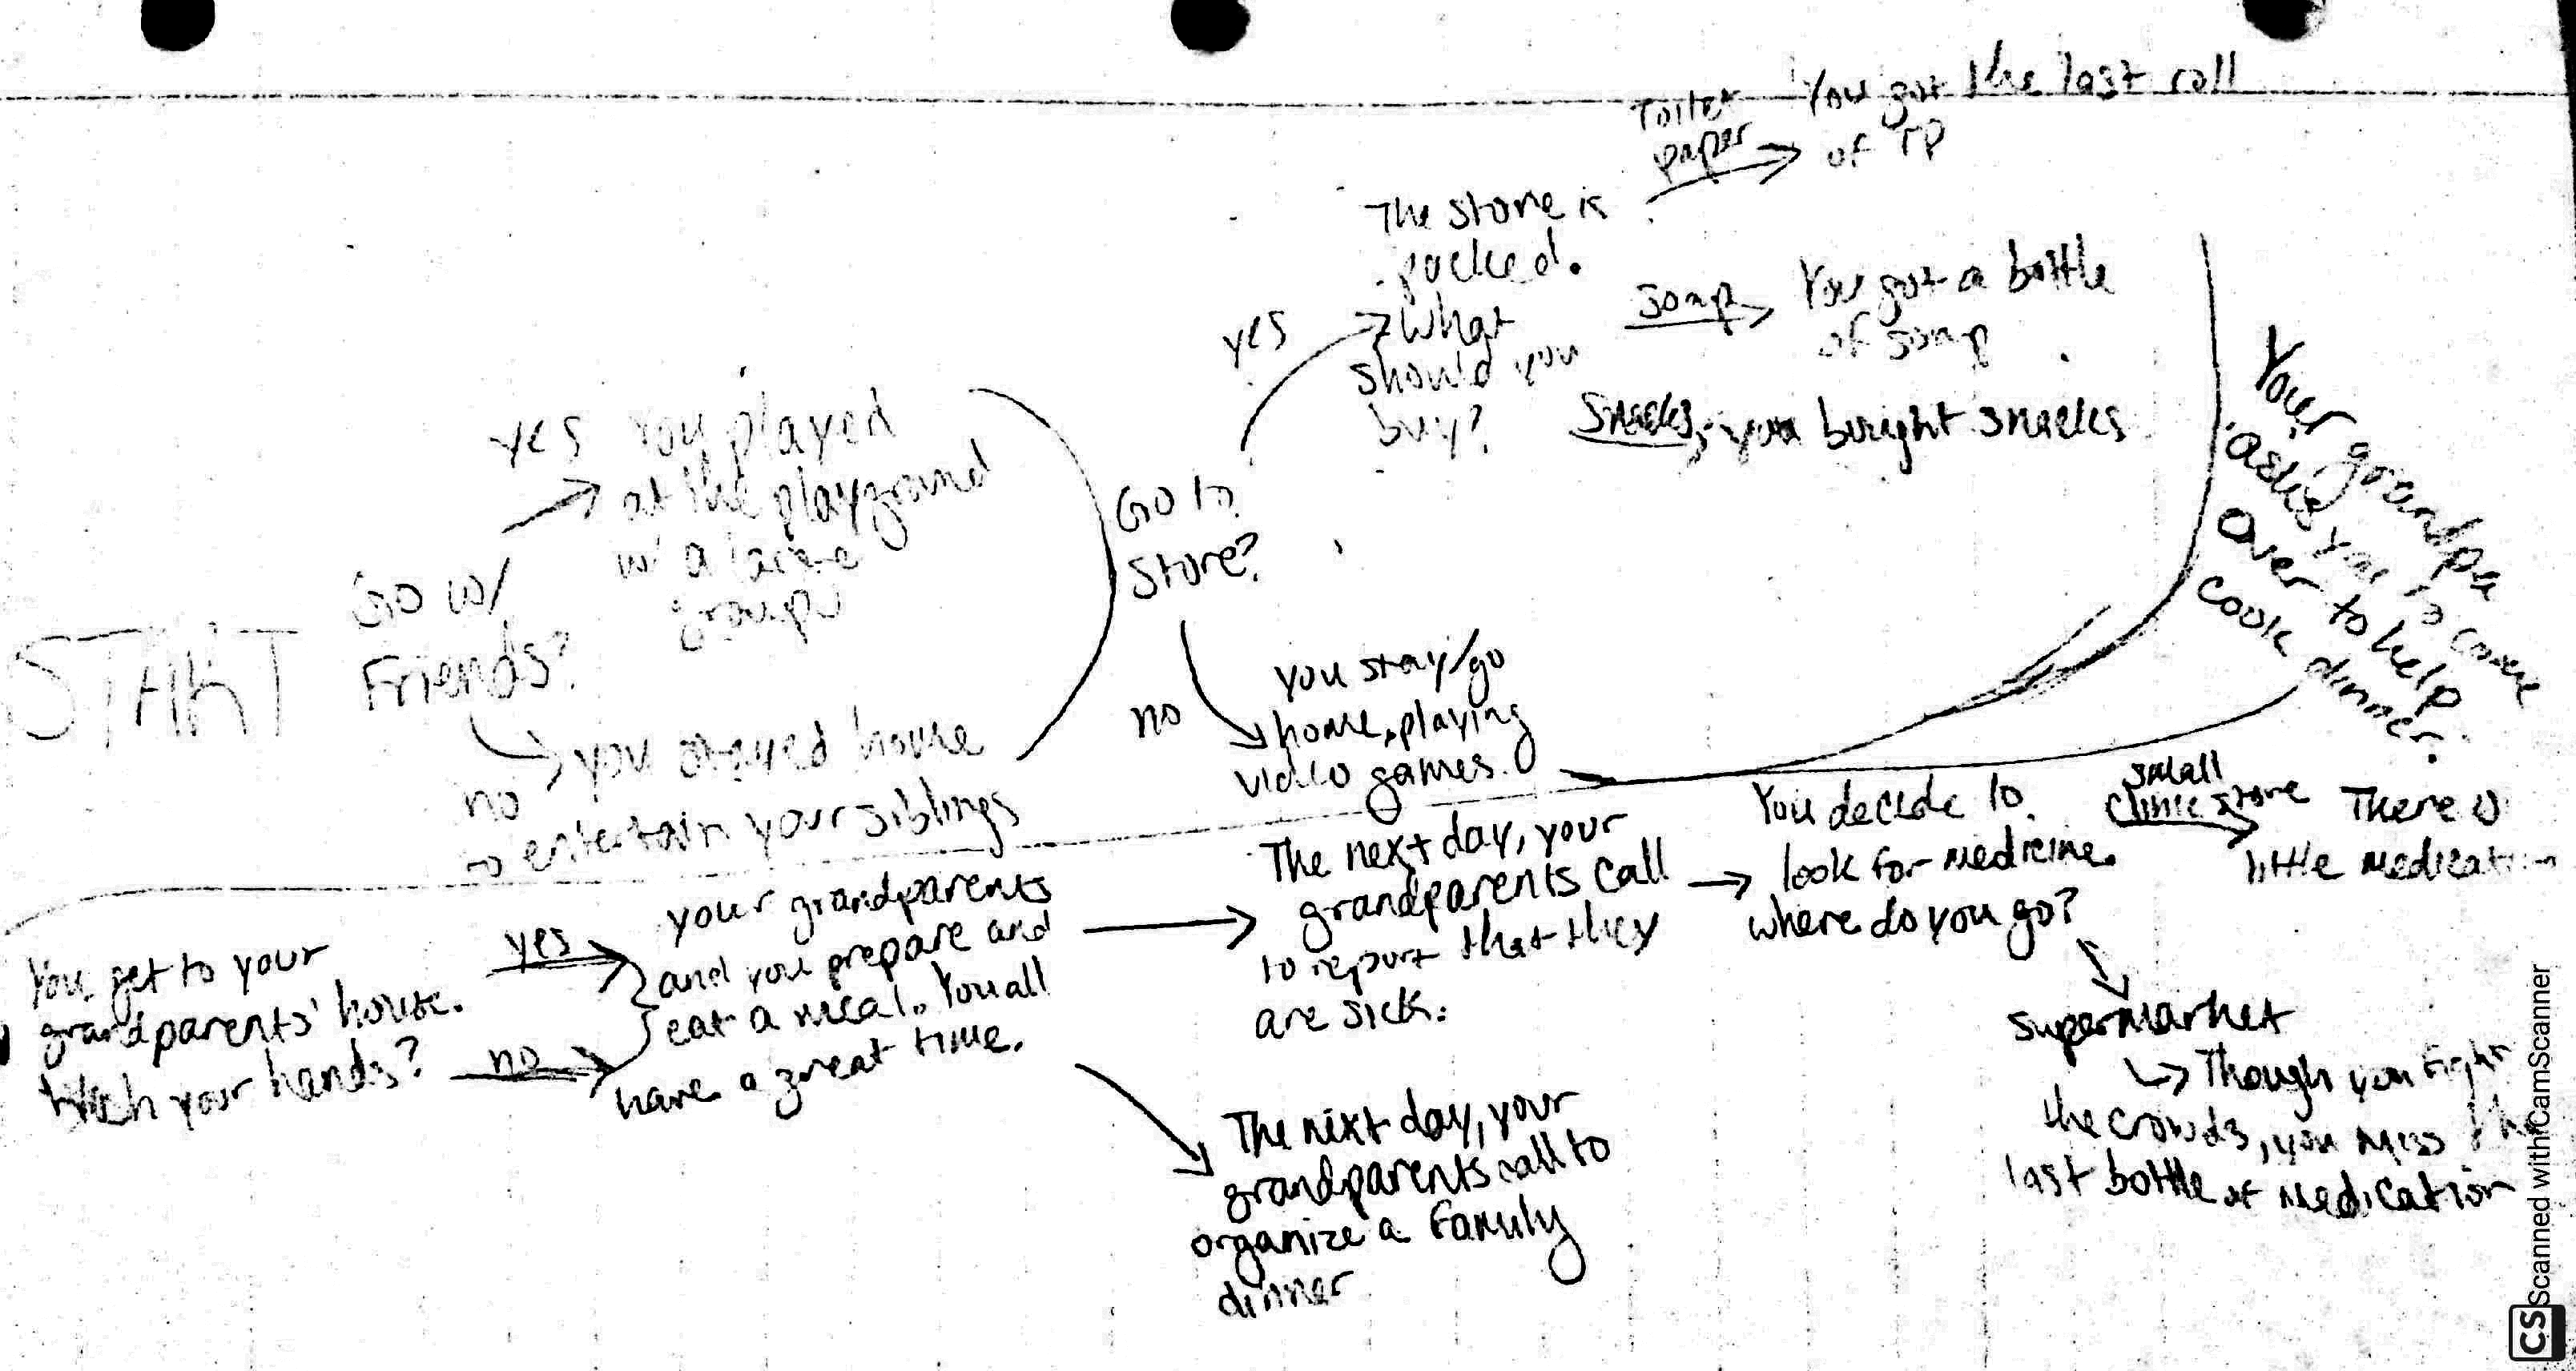 START
Go w/
Friends?
yes
You played
at the playground
w/ a large
group
no
you stayed home
to entertain your siblings
Go to
Store?
yes
The store is
packed.
What
should you
buy?
Toilet
paper
You got the last roll
of TP
Soap
You got a bottle
of soap
Snacks
you bought snacks
no
you stay/go
home, playing
video games.
Your grandpa
asks you to come
over to help
cook dinner.
You get to your
grandparents' house.
your hands?
yes
no
your grandparents
and you prepare and
eat a meal. You all
have a great time.
The next day, your
grandparents call
to report that they
are sick.
You decide to
look for medicine.
where do you go?
small
clinic store
There is
little medication
supermarket
Though you fight
the crowds, you miss the
last bottle of medication
The next day, your
grandparents call to
organize a family
dinner
CS Scanned with CamScanner